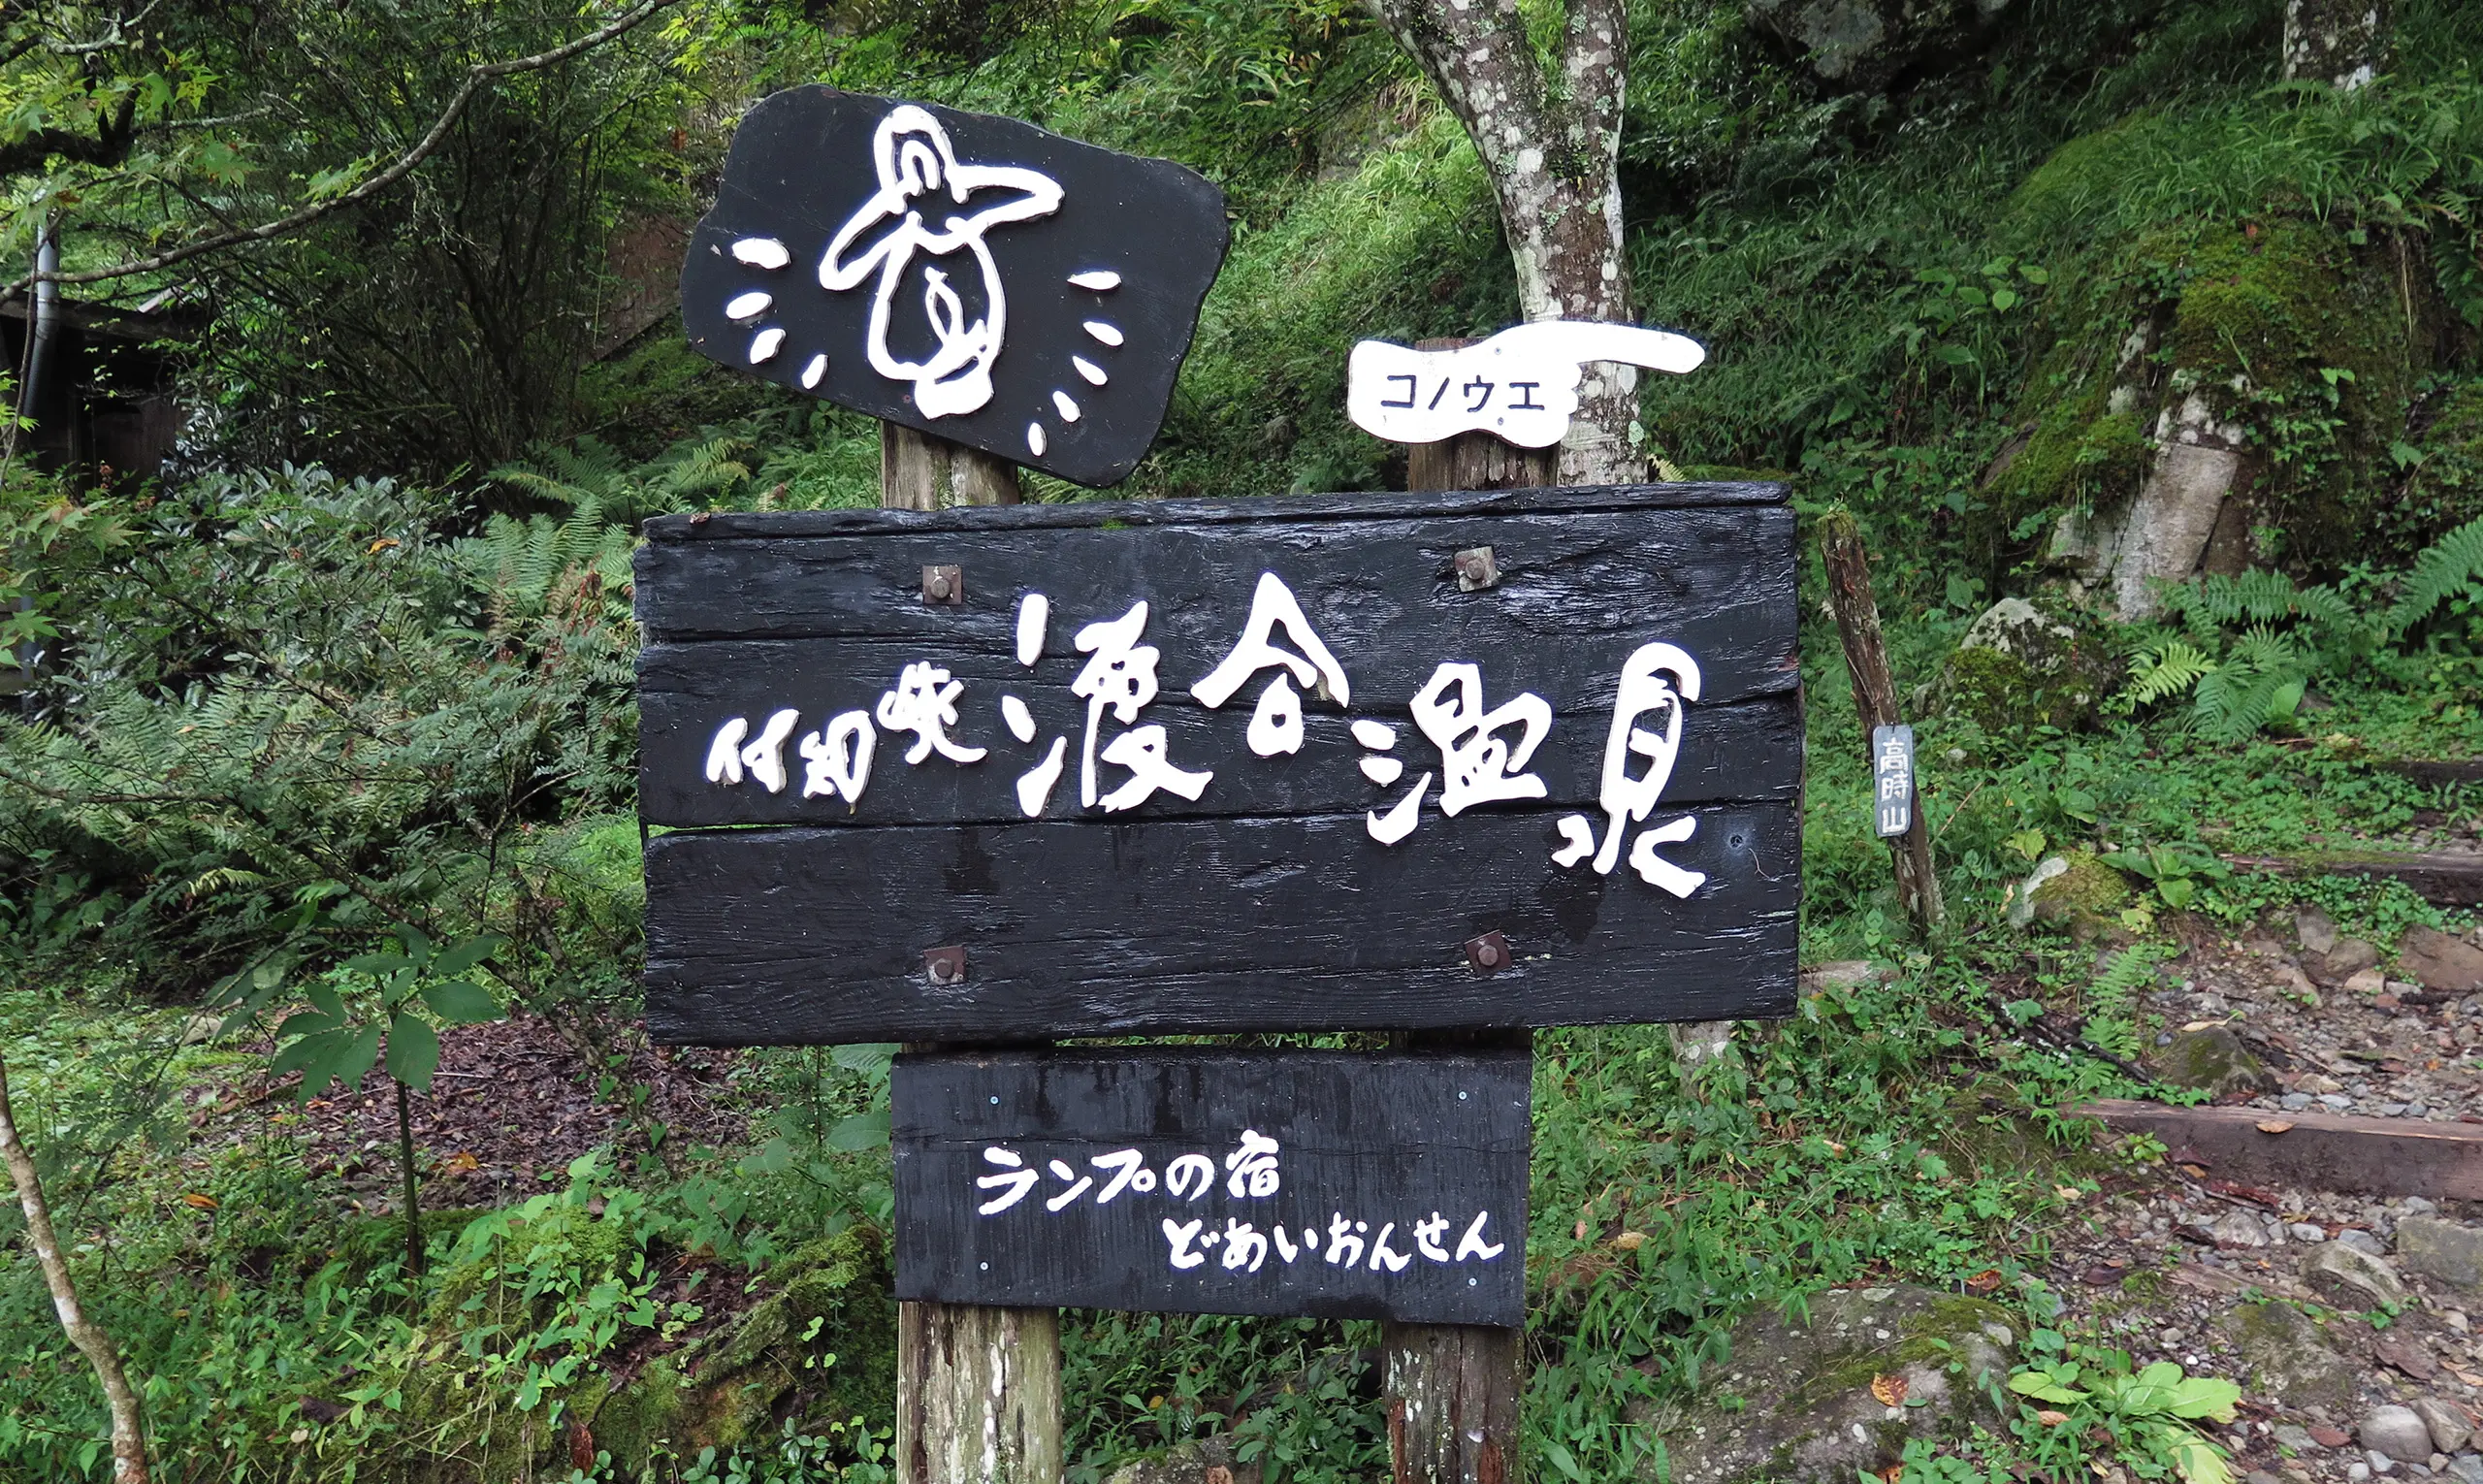 コノウエ
付知峡渡合温泉
高時山
ランプの宿
どあいおんせん